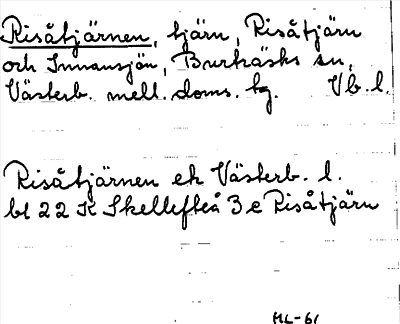 Risåtjärnen, tjärn, Risåtjärn
och Innansjön, Burträsks sn,
Västerb. mell. doms. tg. Vb. l.
Risåtjärnen ek Västerb. l.
bl 22 K Skellefteå 3 e Risåtjärn
HL-61